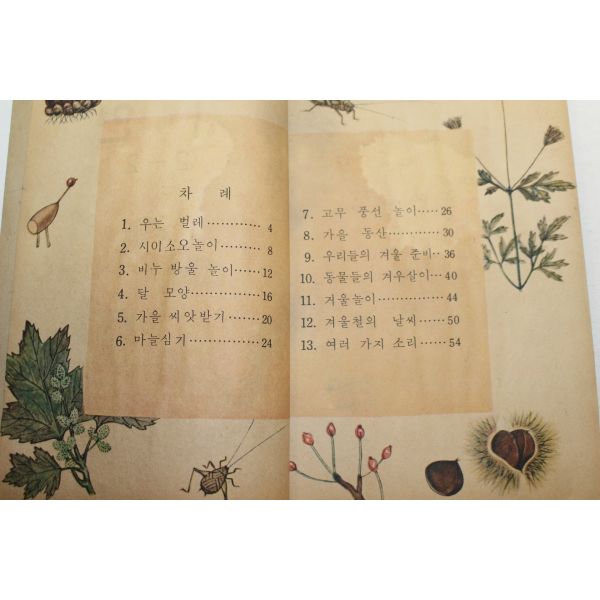 차 례
1. 우는 벌레············ 4
2. 시이소오놀이········ 8
3. 비누 방울 놀이······12
4. 달 모양··············16
5. 가을 씨앗받기·······20
6. 마늘심기··············24
7. 고무 풍선 놀이·····26
8. 가을 동산···········30
9. 우리들의 겨울 준비··36
10. 동물들의 겨우살이···40
11. 겨울놀이···········44
12. 겨울철의 날씨·····50
13. 여러 가지 소리······54